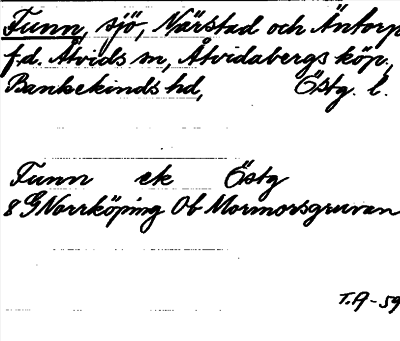 Funn, sjö, Närstad och Äntorp
f.d. Åtvids sn, Åtvidabergs köp.,
Bankekinds hd, Östg. l.
Funn ek Östg
8 G Norrköping Ob Mormorsgruvan
T.A-59